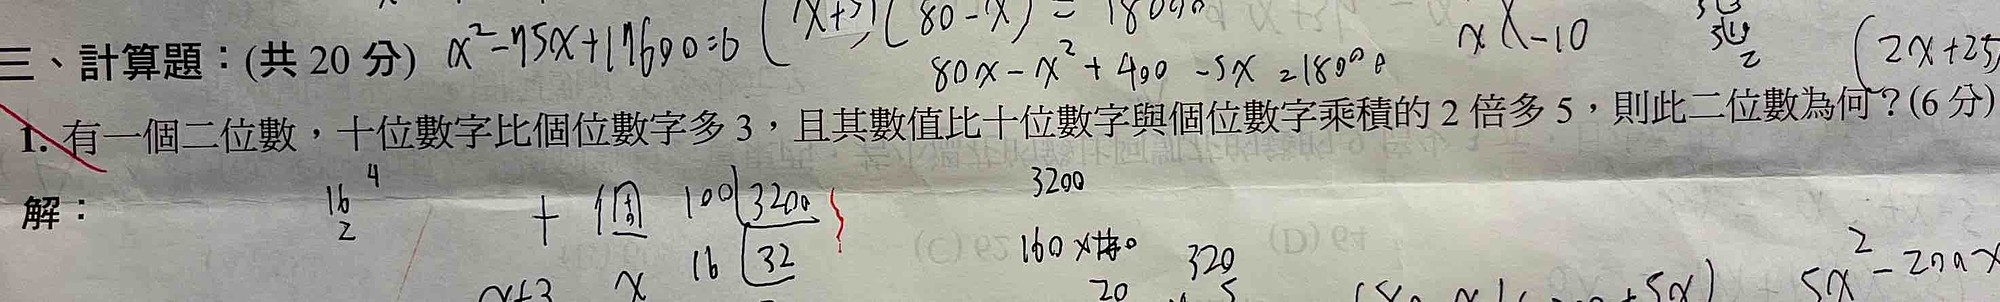 (80-x) = 18000
三、計算題：(共 20 分) x²-75x+17600=0
80x-x²+400-5x=18000
x(-10
(2x+25
1. 有一個二位數，十位數字比個位數字多 3，且其數值比十位數字與個位數字乘積的 2 倍多 5，則此二位數為何？(6 分)
解：
16 4
2
十 個 100 3200
3200
x+3 x 16 32
160×
320
20 5
5x²-200x